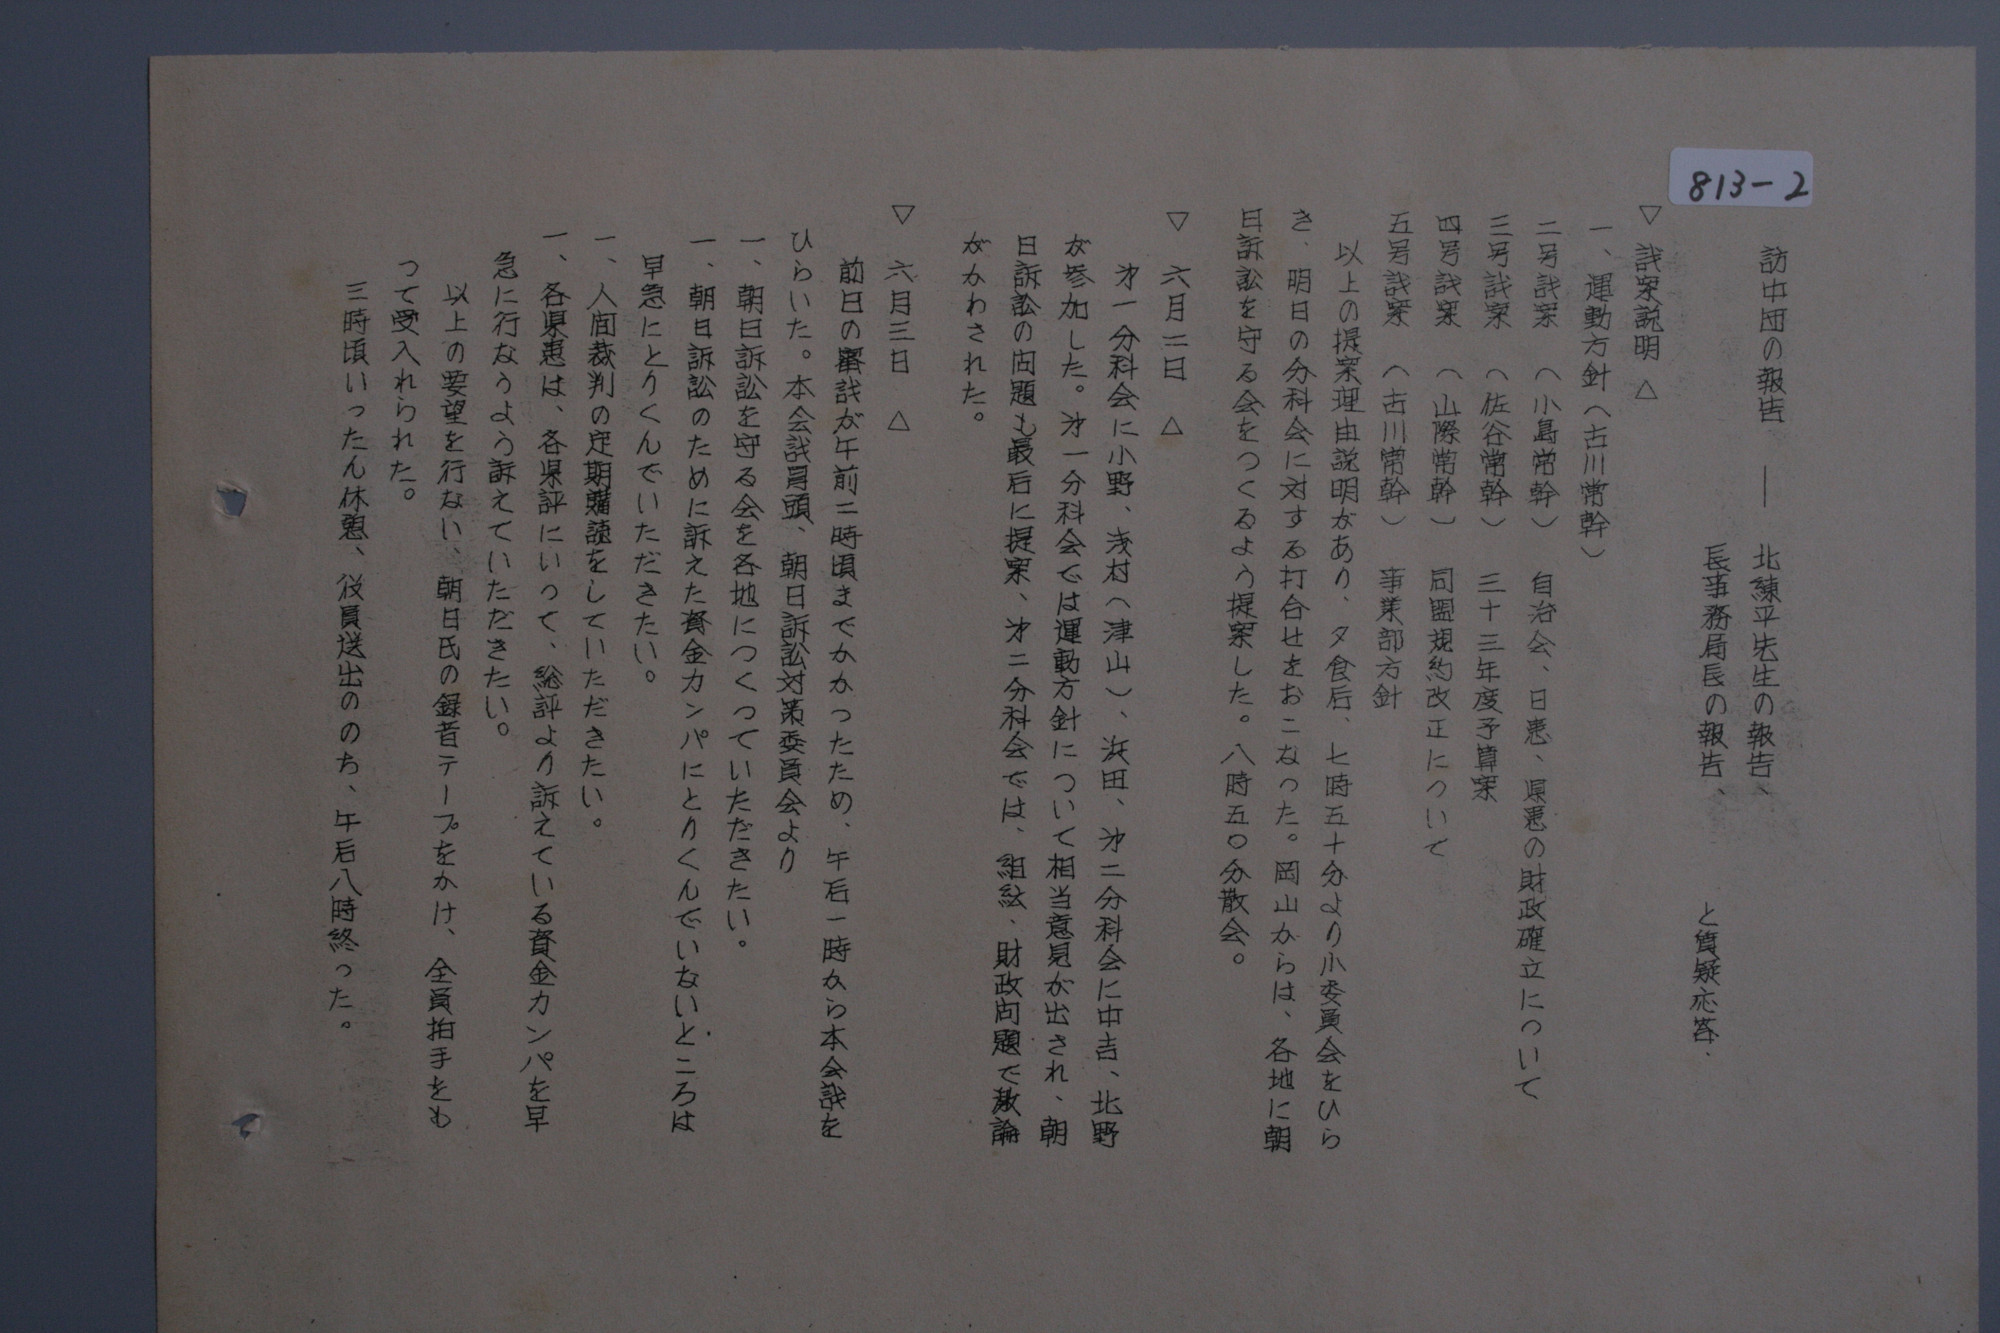 813-2
訪中団の報告 ―― 北練平先生の報告、
長事務局長の報告、 と質疑応答、
▽ 議案説明 △
一、運動方針（古川常幹）
二号議案 （小島常幹） 自治会、日患、県患の財政確立について
三号議案 （佐谷常幹） 三十三年度予算案
四号議案 （山際常幹） 同盟規約改正について
五号議案 （古川常幹） 事業部方針
以上の提案理由説明があり、夕食后、七時五十分より小委員会をひら
き、明日の分科会に対する打合せをおこなった。岡山からは、各地に朝
日訴訟を守る会をつくるよう提案した。八時五〇分散会。
▽ 六月二日 △
㐧一分科会に小野、浅村（津山）、浜田、㐧二分科会に中吉、北野
が参加した。㐧一分科会では運動方針について相当意見が出され、朝
日訴訟の问題も最后に提案、㐧二分科会では、組紘、財政问題で激論
がかわされた。
▽ 六月三日 △
前日の審議が午前二時頃までかかったため、午后一時から本会議を
ひらいた。本会議冒頭、朝日訴訟対策委員会より
一、朝日訴訟を守る会を各地につくっていただきたい。
一、朝日訴訟のために訴えた資金カンパにとりくんでいないところは
早急にとりくんでいただきたい。
一、人间裁判の定期購読をしていただきたい。
一、各県患は、各県評にいって、総評より訴えている資金カンパを早
急に行なうよう訴えていただきたい。
以上の要望を行ない、朝日氏の録音テープをかけ、全員拍手をも
って受入れられた。
三時頃いったん休憩、役員送出ののち、午后八時終った。